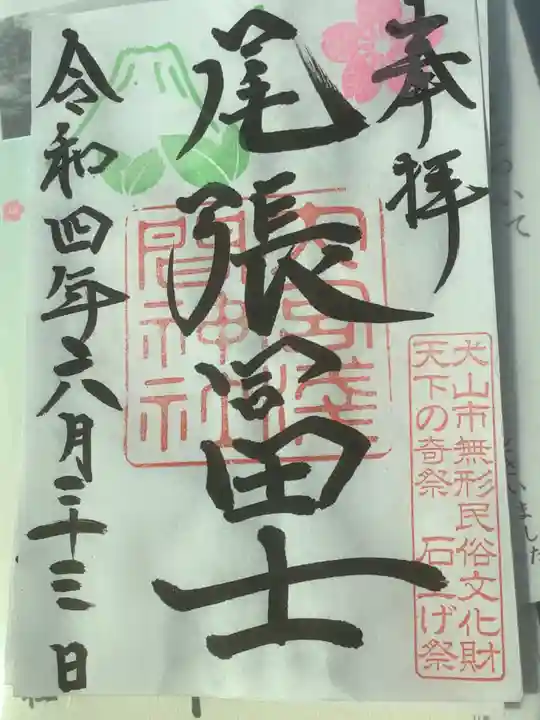 奉拝
尾張冨士
令和四年六月二十三日
大宮浅
間神社
犬山市無形民俗文化財
天下の奇祭 石上げ祭